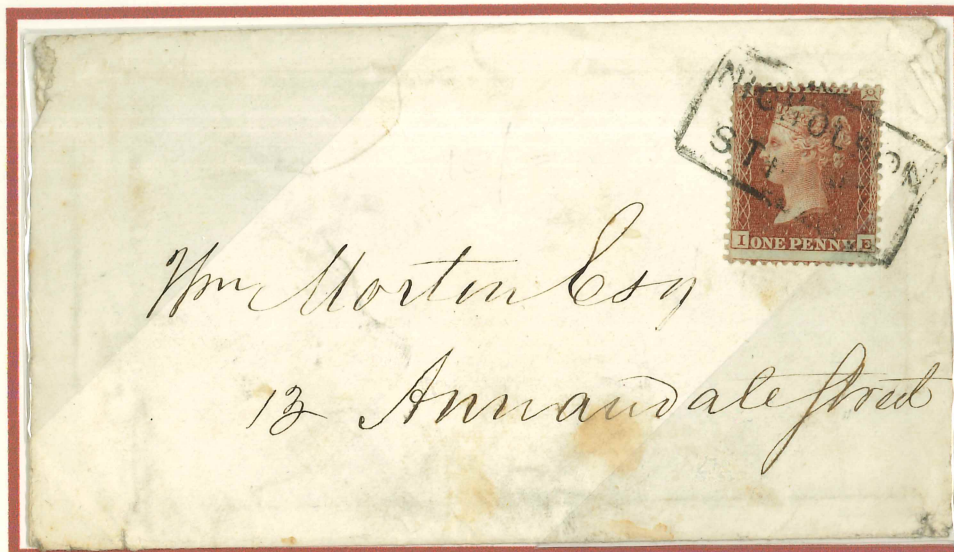 NICHOLSON
ST
I ONE PENNY E
Wm Morton Esq
13 Annandale Street